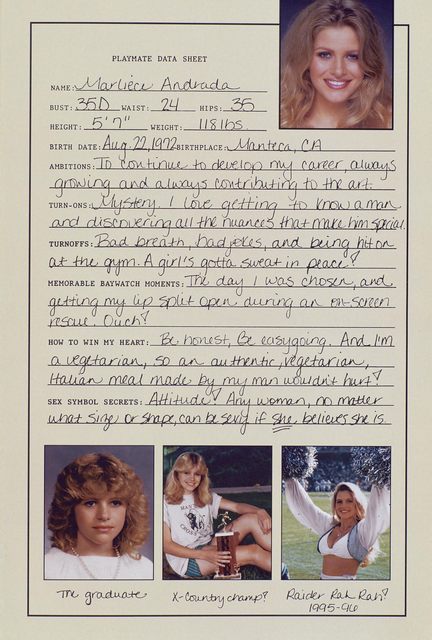 PLAYMATE DATA SHEET
NAME: Marliece Andrada
BUST: 35D WAIST: 24 HIPS: 35
HEIGHT: 5'7" WEIGHT: 118 lbs.
BIRTH DATE: Aug. 22, 1972 BIRTHPLACE: Manteca, CA
AMBITIONS: To continue to develop my career, always
growing and always contributing to the art.
TURN-ONS: Mystery. I love getting to know a man
and discovering all the nuances that make him special.
TURNOFFS: Bad breath, bad jokes, and being hit on
at the gym. A girl's gotta sweat in peace!
MEMORABLE BAYWATCH MOMENTS: The day I was chosen, and
getting my lip split open during an on-screen
rescue. Ouch!
HOW TO WIN MY HEART: Be honest, Be easygoing. And I'm
a vegetarian, so an authentic, vegetarian,
Italian meal made by my man wouldn't hurt!
SEX SYMBOL SECRETS: Attitude! Any woman, no matter
what size or shape, can be sexy if she believes she is.
The graduate
X-Country champ!
Raider Rah Rah!
1995-96